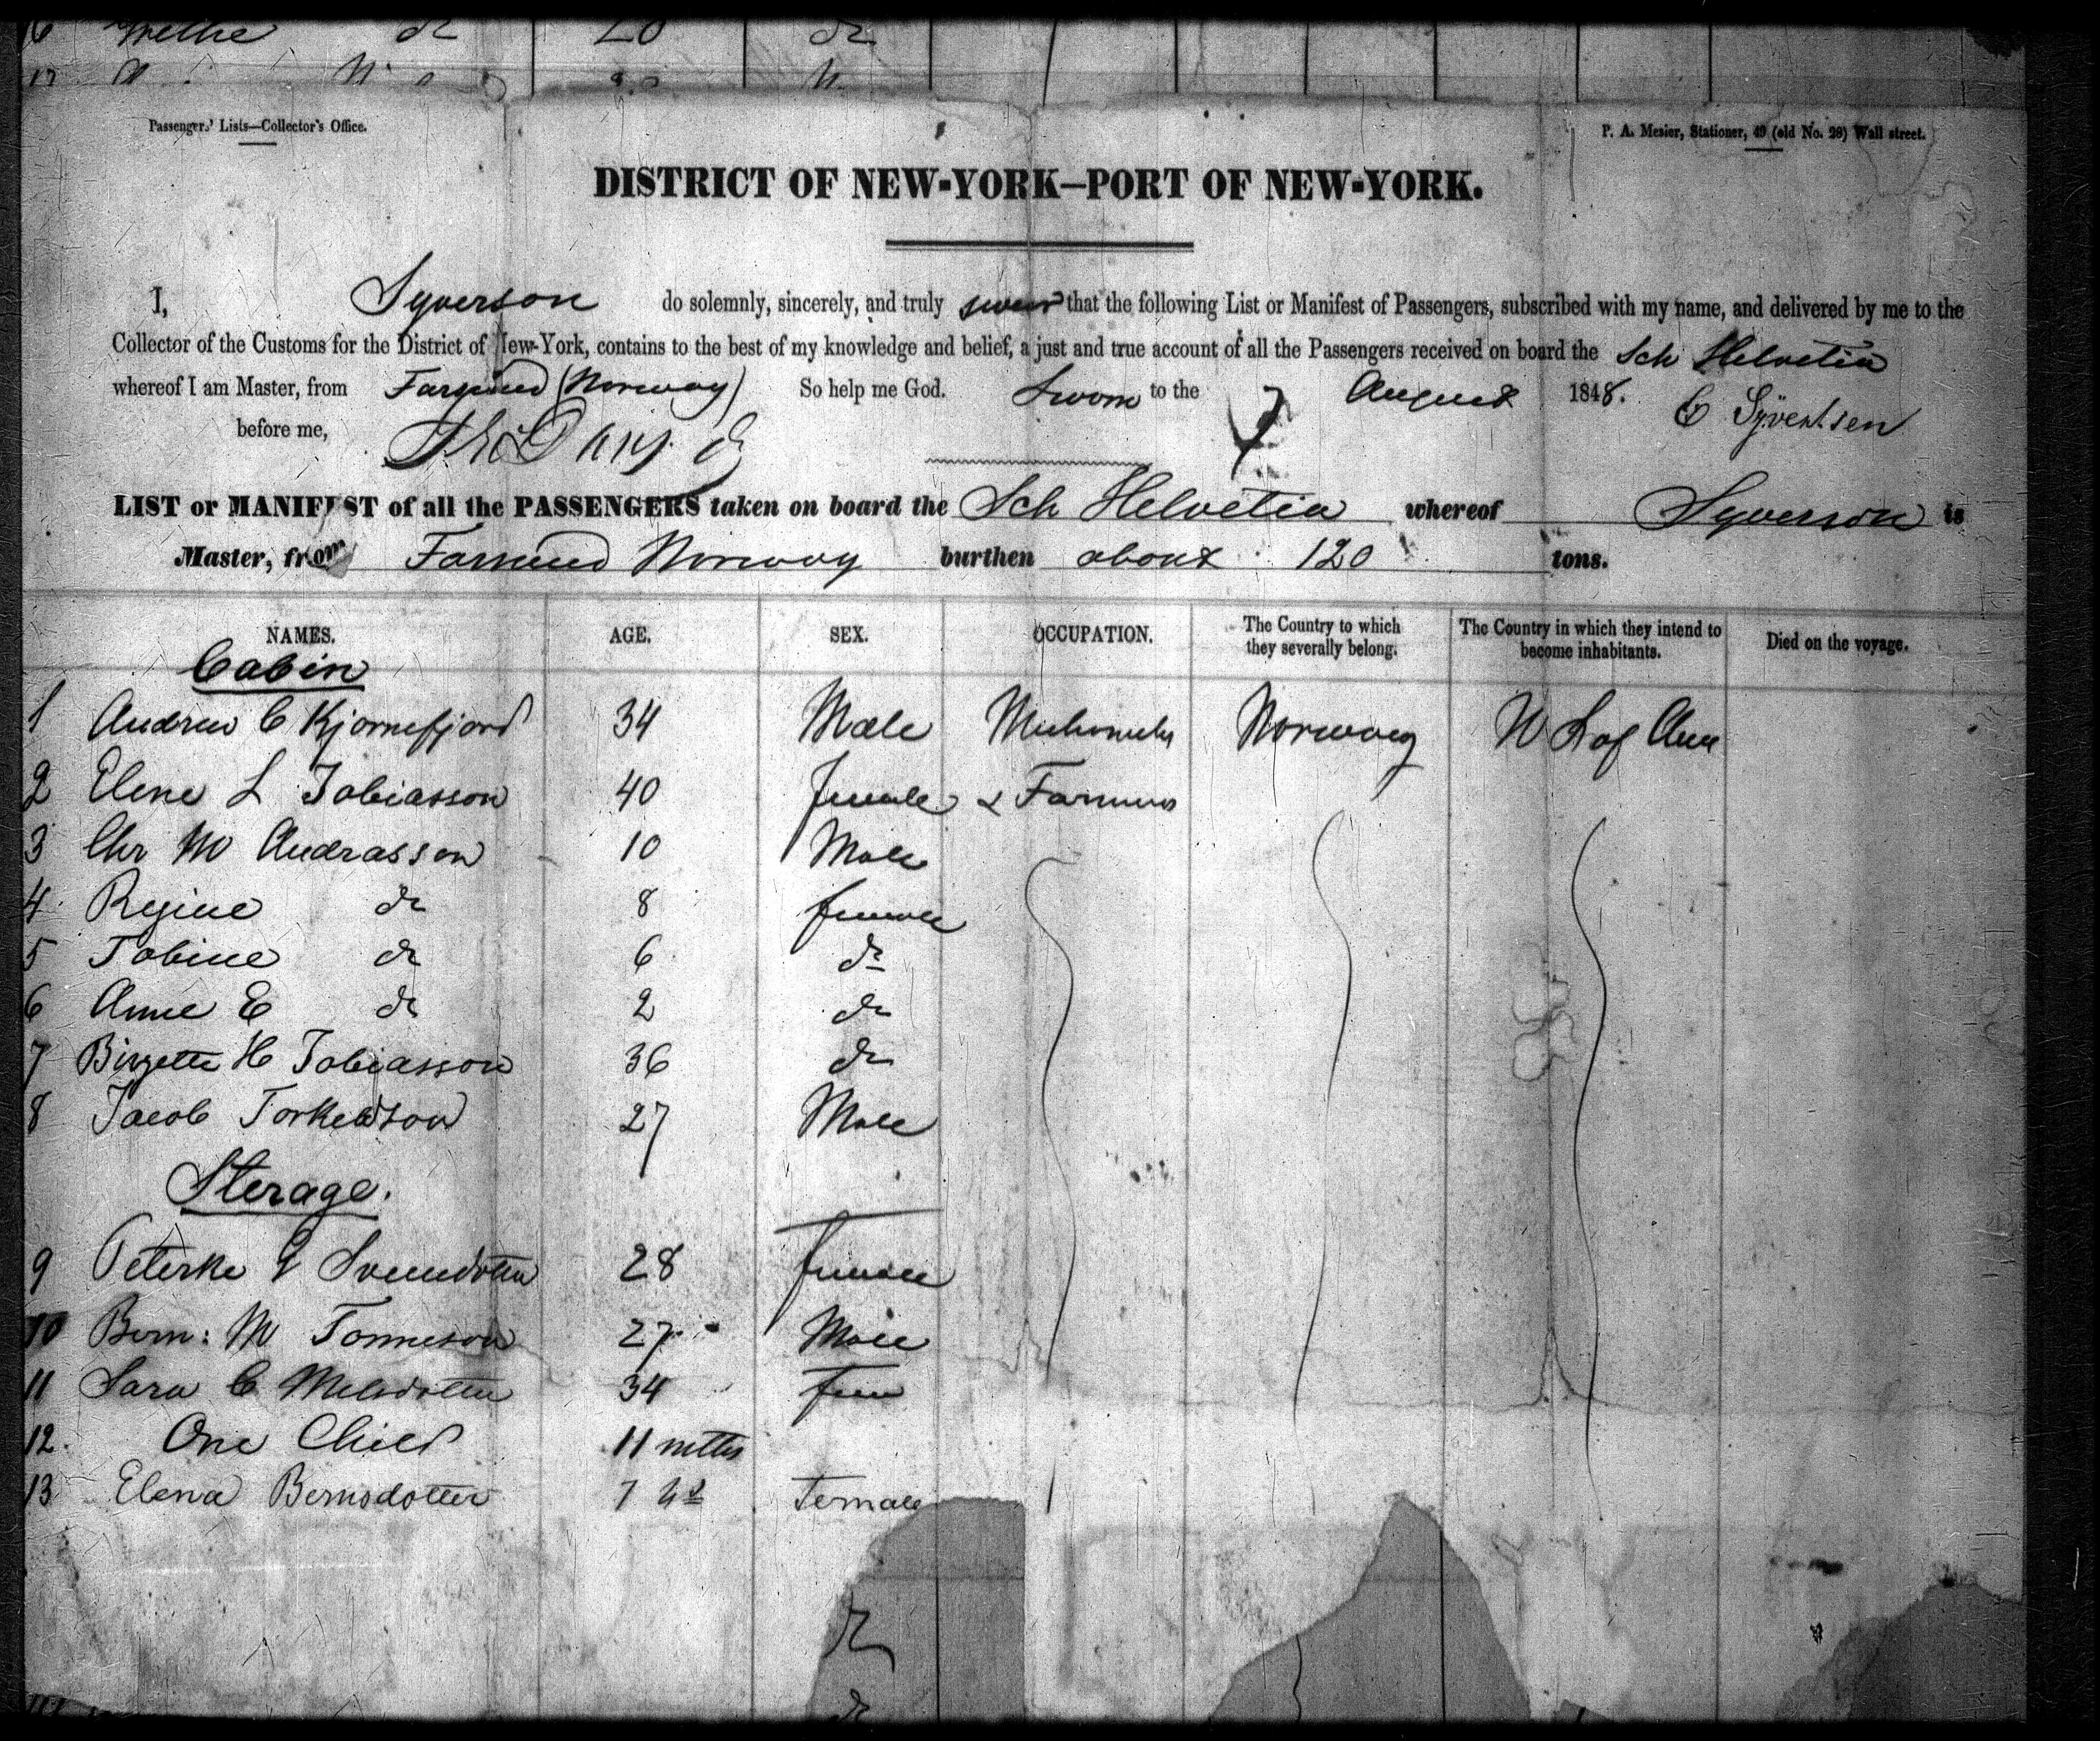 16 Mettie do 20 do
17
Passengers' Lists—Collector's Office.
P. A. Mesier, Stationer, 49 (old No. 28) Wall street.
DISTRICT OF NEW-YORK—PORT OF NEW-YORK.
I, Syverson do solemnly, sincerely, and truly swear that the following List or Manifest of Passengers, subscribed with my name, and delivered by me to the
Collector of the Customs for the District of New-York, contains to the best of my knowledge and belief, a just and true account of all the Passengers received on board the Sch Helvetia
whereof I am Master, from Farsund (Norway) So help me God. Sworn to the 7 August 1848. C Syvertsen
before me,
LIST or MANIFEST of all the PASSENGERS taken on board the Sch Helvetia whereof Syverson is
Master, from Farsund Norway burthen about 120 tons.
NAMES. AGE. SEX. OCCUPATION. The Country to which they severally belong. The Country in which they intend to become inhabitants. Died on the voyage.
Cabin
1 Andrew C Kjornefjord 34 Male Mechanicks Norway U S of Ame
2 Elene L Tobiasson 40 female & Farmers
3 Chr M Andrasson 10 Male
4 Regine do 8 female
5 Tobine do 6 do
6 Anne E do 2 do
7 Birgette H Tobiasson 36 do
8 Jacob Torkeldson 27 Male
Sterage.
9 Peterke G Svensdotter 28 female
10 Bern: M Tonneson 27 Male
11 Sara C Melsdotter 34 fem
12. One Child 11 mths
13 Elena Bernsdotter 7 Female
do
do